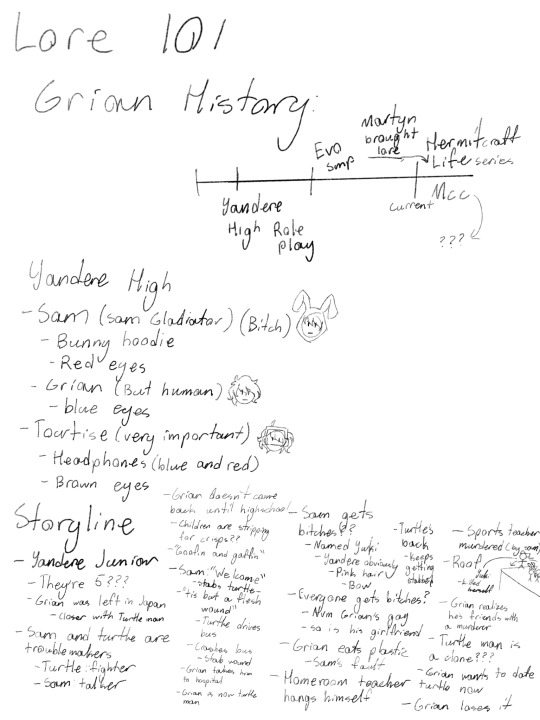 Lore 101
Grian History:
Evo
smp
Martyn
brought
lore
Hermitcraft
Life series
Yandere
High Role
play
current
Mcc
???
Yandere High
- Sam (Sam Gladiator) (Bitch)
- Bunny hoodie
- Red eyes
- Grian (But human)
- blue eyes
- Tourtise (very important)
- Headphones (blue and red)
- Brown eyes
Storyline
- Yandere Junior
- They're 5???
- Grian was left in Japan
- closer with Turtle man
- Sam and turtle are
troublemakers
- Turtle: fighter
- Sam: talker
- Grian doesn't came
back until highschool
- Children are stripping
for crisps??
- "Goofin and gaffin"
- Sam: "Welcome"
- stabs turtle -
- "tis but a flesh
wound"
- Turtle drives
bus
- Crashes bus
- Stab wound
- Grian takes him
to hospital
- Grian is now turtle
man
- Sam gets
bitches??
- Named Yuki
- Yandere obviously
- Pink hair
- Bow
- Everyone gets bitches?
- Nvm Grian's gay
- so is his girlfriend
- Grian eats plastic
- Sam's fault
- Homeroom teacher
hangs himself
- Turtle's
back
- keeps
getting
stabbed
- Sports teacher
murdered (by sam)
- Roof
Yuki
- killed
herself
- Grian realizes
he's friends with
a murderer
- Turtle man is
a clone???
- Grian wants to date
turtle now
- Grian loses it